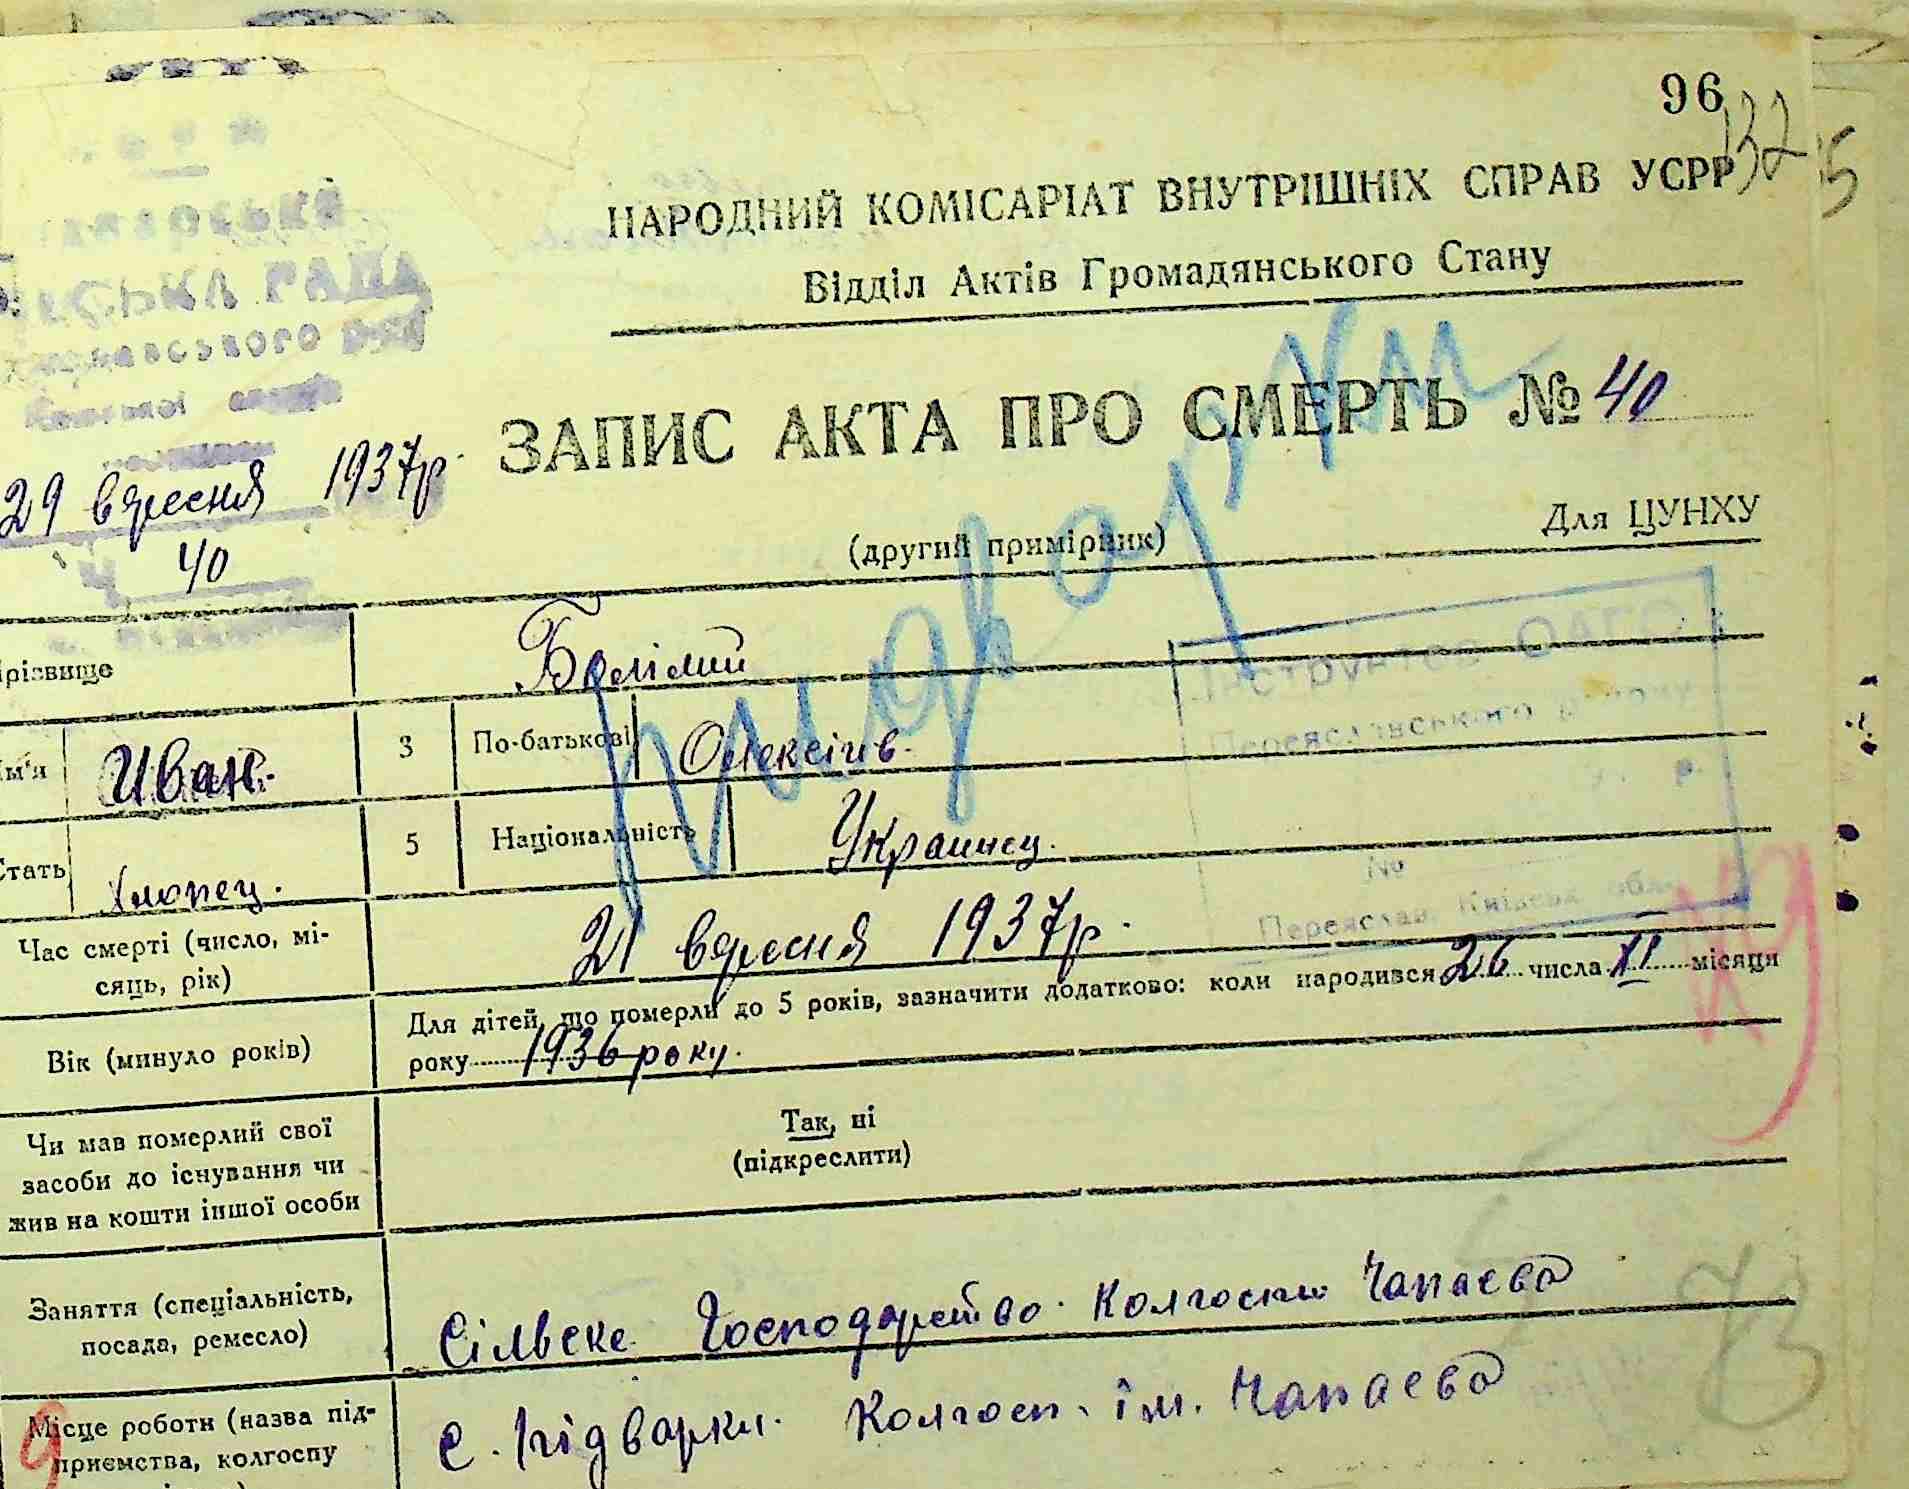 96
132
5
НАРОДНИЙ КОМІСАРІАТ ВНУТРІШНІХ СПРАВ УСРР
Відділ Актів Громадянського Стану
ЗАПИС АКТА ПРО СМЕРТЬ № 40
29 вересня 1937р.
40
(другий примірник)
Для ЦУНХУ
Підварки
різвище
Болілий
Інструктор ОАГС
Переяславського району
р.
№
Переяслав, Київськ. обл.
м'я
Иван.
3
По-батькові
Олексіїв.
Стать
Хлопец.
5
Національність
Украинец.
Час смерті (число, місяць, рік)
21 вересня 1937р.
Вік (минуло років)
Для дітей, що померли до 5 років, зазначити додатково: коли народився 26 числа XI місяця
року 1936 року.
Чи мав померлий свої
засоби до існування чи
жив на кошти іншої особи
Так, ні
(підкреслити)
Заняття (спеціальність,
посада, ремесло)
Сільске Господарство. Колгоспи Чапаєва
Місце роботи (назва під-
приємства, колгоспу
с. Підварки. Колгосп. ім. Чапаєва
73